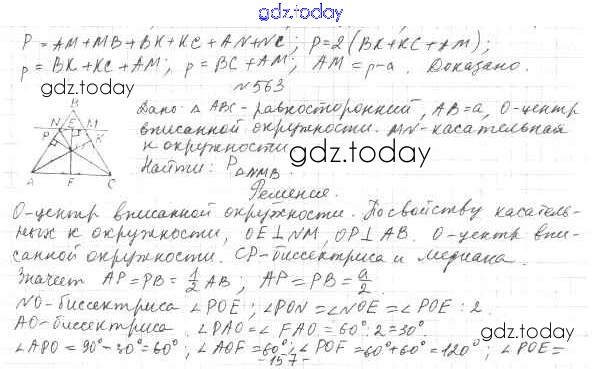 gdz.today
P = AM + MB + BK + KC + AN + NC; P = 2(BK + KC + AM);
p = BK + KC + AM; p = BC + AM; AM = p - a. Доказано.
gdz.today
№563
B
N E M
P K
A F C
Дано: △ ABC - равносторонний, AB = a, O - центр
вписанной окружности. MN - касательная
к окружности
gdz.today
Найти: P △NMB.
Решение.
O - центр вписанной окружности. По свойству касатель-
ных к окружности, OE ⊥ NM, OP ⊥ AB. O - центр впи-
санной окружности. CP - биссектриса и медиана.
Значит AP = PB = 1/2 AB; AP = PB = a/2.
NO - биссектриса ∠POE; ∠PON = ∠NOE = ∠POE : 2.
AO - биссектриса. ∠PAO = ∠FAO = 60° : 2 = 30°.
gdz.today
∠APO = 90° - 30° = 60°; ∠AOF = 60°; ∠POF = 60° + 60° = 120°; ∠POE =
- 157 -